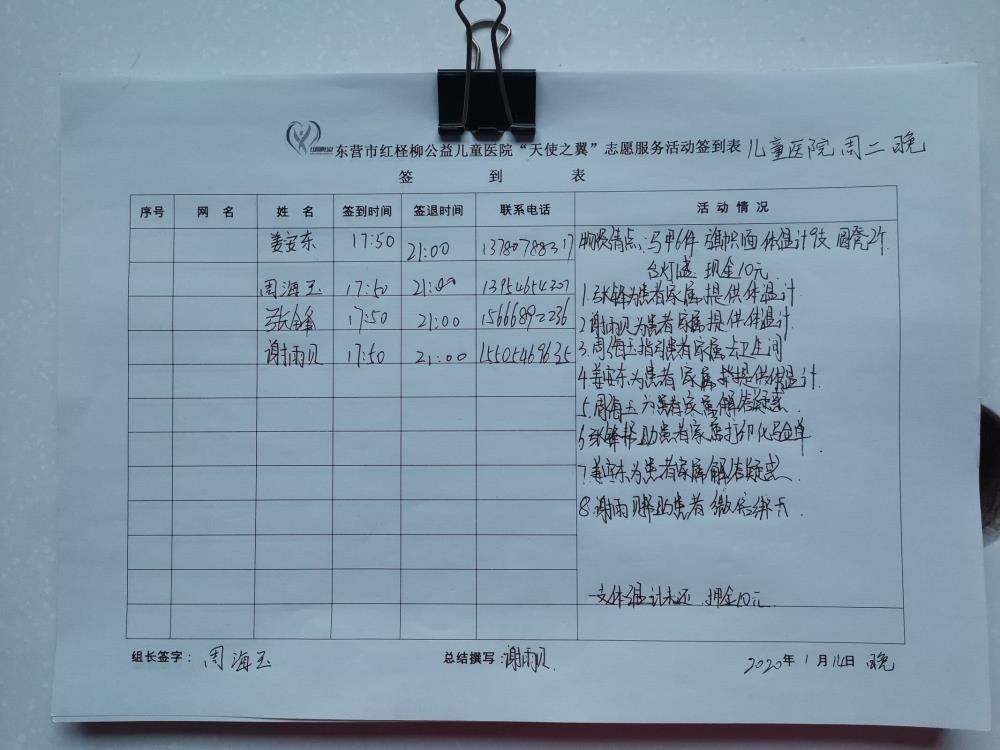 东营市红柽柳公益儿童医院“天使之翼”志愿服务活动签到表 儿童医院 周二 晚
签 到 表
序号 网 名 姓 名 签到时间 签退时间 联系电话 活 动 情 况
姜安东 17:50 21:00 13780788317
物资清点:马甲6件 旗帜1面 体温计9支 圆凳2个
台灯1盏 现金10元
周海玉 17:50 21:00 13954654207
1.张锋为患者家属提供体温计
张锋 17:50 21:00 15666892236
2.谢雨贝为患者家属提供体温计
谢雨贝 17:50 21:00 15505469635
3.周海玉指引患者家属去卫生间
4.姜安东为患者家属提供体温计.
5.周海玉为患者家属解答疑惑.
6.张锋帮助患者家属打印化验单
7.姜安东为患者家属解答疑惑.
8.谢雨贝帮助患者微信绑卡.
一支体温计未还 押金10元.
组长签字: 周海玉 总结撰写:谢雨贝. 2020年 1 月 14日 晚